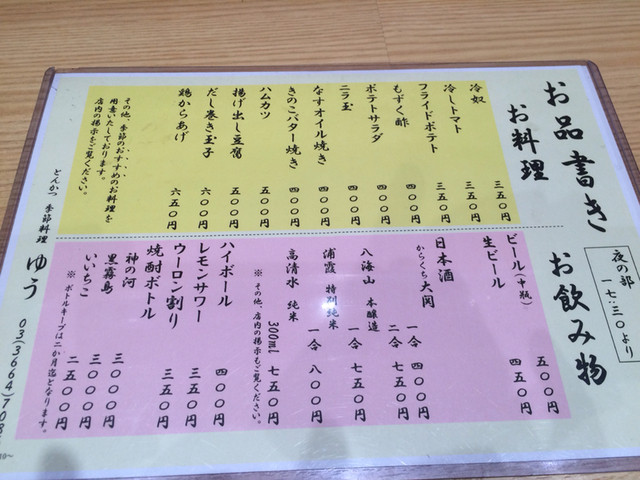 お品書き
夜の部
一七:三〇より
お料理
冷奴 三五〇円
冷しトマト 三五〇円
フライドポテト 三五〇円
もずく酢 四〇〇円
ポテトサラダ 四〇〇円
ニラ玉 四〇〇円
なすオイル焼き 四〇〇円
きのこバター焼き 四〇〇円
ハムカツ 五〇〇円
揚げ出し豆腐 五〇〇円
だし巻き玉子 六〇〇円
鶏からあげ 六五〇円
その他、季節のおすすめのお料理を
用意いたしております。
店内の掲示をご覧ください。
お飲み物
ビール(中瓶) 五五〇円
生ビール 四五〇円
日本酒
からくち 大関 一合 四〇〇円
二合 七五〇円
八海山 本醸造 一合 七五〇円
浦霞 特別純米 一合 八〇〇円
高清水 純米 300ml 七五〇円
※その他、店内の掲示もご覧ください。
ハイボール 四〇〇円
レモンサワー 三五〇円
ウーロン割り 三五〇円
焼酎ボトル
神の河 二五〇〇円
いいちこ 三〇〇〇円
黒霧島 三〇〇〇円
※ボトルキープは二か月迄となります。
とんかつ 季節料理 ゆう 03(3664)708